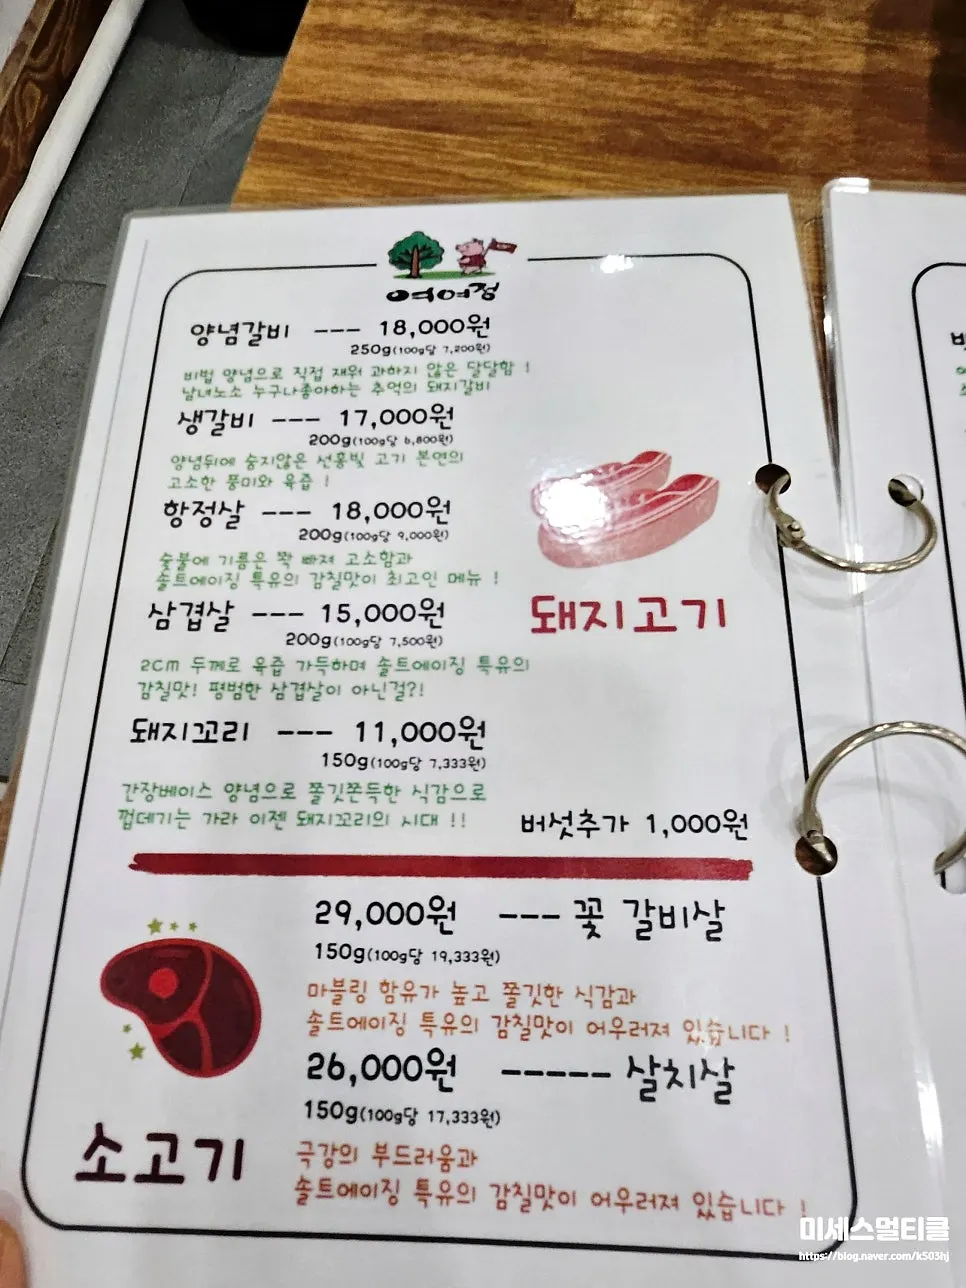 여여정
양념갈비 --- 18,000원
250g(100g당 7,200원)
비법 양념으로 직접 재워 과하지 않은 달달함 !
남녀노소 누구나좋아하는 추억의 돼지갈비
생갈비 --- 17,000원
200g(100g당 6,800원)
양념뒤에 숨지않은 선홍빛 고기 본연의
고소한 풍미와 육즙 !
항정살 --- 18,000원
200g(100g당 9,000원)
숯불에 기름은 쫙 빠져 고소함과
솔트에이징 특유의 감칠맛이 최고인 메뉴 !
삼겹살 --- 15,000원
200g(100g당 7,500원)
2CM 두께로 육즙 가득하며 솔트에이징 특유의
감칠맛! 평범한 삼겹살이 아닌걸?!
돼지고기
돼지꼬리 --- 11,000원
150g(100g당 7,333원)
간장베이스 양념으로 쫄깃쫀득한 식감으로
껍데기는 가라 이젠 돼지꼬리의 시대 !!
버섯추가 1,000원
29,000원 --- 꽃 갈비살
150g(100g당 19,333원)
마블링 함유가 높고 쫄깃한 식감과
솔트에이징 특유의 감칠맛이 어우러져 있습니다 !
26,000원 ----- 살치살
150g(100g당 17,333원)
극강의 부드러움과
솔트에이징 특유의 감칠맛이 어우러져 있습니다 !
소고기
미세스멀티클
https://blog.naver.com/k503hj